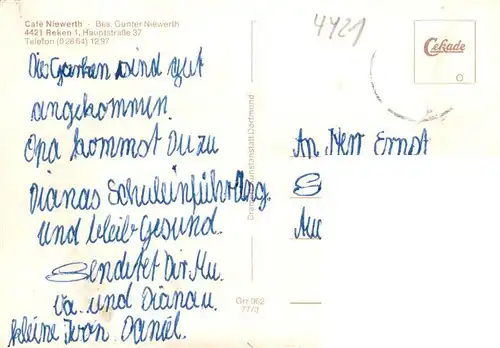 Café Niewerth - Bes. Günter Niewerth
4421 Reken 1, Hauptstraße 37
Telefon (0 28 64) 12 97
4421
Cekade
Die Karten sind gut
angekommen.
Opa kommst Du zu
Dianas Schuleinführung.
und bleib Gesund.
Sendetet Dir Mu.
Va. und Dianau.
kleine Ivon. Daniel.
An Herr Ernst
Gr 062
77/3